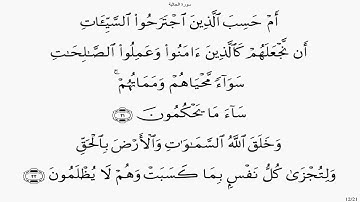 سورة الجاثية
أَمْ حَسِبَ ٱلَّذِينَ ٱجْتَرَحُوا۟ ٱلسَّيِّـَٔاتِ
أَن نَّجْعَلَهُمْ كَٱلَّذِينَ ءَامَنُوا۟ وَعَمِلُوا۟ ٱلصَّـٰلِحَـٰتِ
سَوَآءً مَّحْيَاهُمْ وَمَمَاتُهُمْ ۚ
سَآءَ مَا يَحْكُمُونَ ٢١
وَخَلَقَ ٱللَّهُ ٱلسَّمَـٰوَٰتِ وَٱلْأَرْضَ بِٱلْحَقِّ
وَلِتُجْزَىٰ كُلُّ نَفْسٍۭ بِمَا كَسَبَتْ وَهُمْ لَا يُظْلَمُونَ ٢٢
12/21